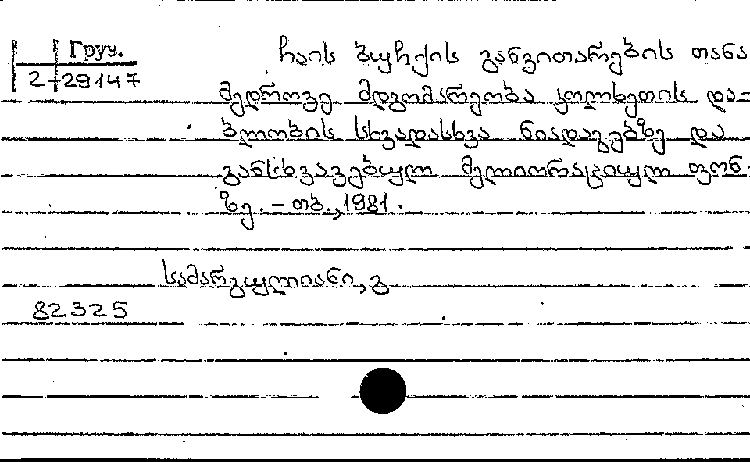 Груз.
2-29147
ჩაის ბუჩქის განვითარების თანა
მედროვე მდგომარეობა კოლხეთის და-
ბლობის სხვადასხვა ნიადაგებზე და
განსხვავებულ მელიორაციულ ფონ-
ზე. - თბ., 1981.
სამარგულიანი, გ
82325